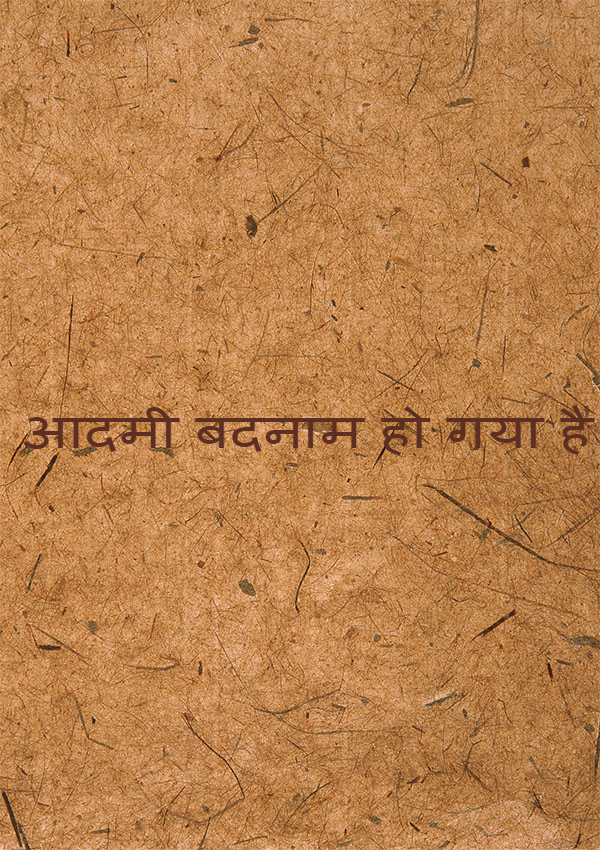 आदमी बदनाम हो गया है